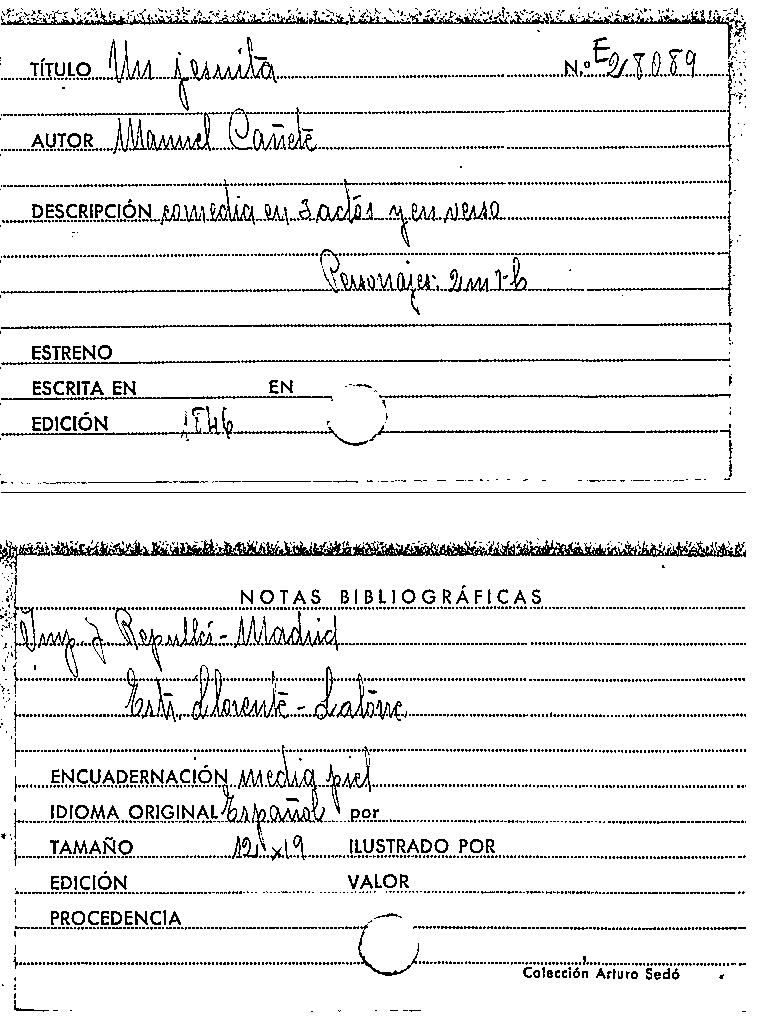 TÍTULO Un jesuita N.º E 28089
AUTOR Manuel Cañete
DESCRIPCIÓN comedia en 3 actos y en verso
Personajes: 2m 7h
ESTRENO
ESCRITA EN EN
EDICIÓN 1846
NOTAS BIBLIOGRÁFICAS
Imp. J. Repullés - Madrid
Estr. Llorente - Latorre
ENCUADERNACIÓN media piel
IDIOMA ORIGINAL Español por
TAMAÑO 12 x 19 ILUSTRADO POR
EDICIÓN VALOR
PROCEDENCIA
Colección Arturo Sedó